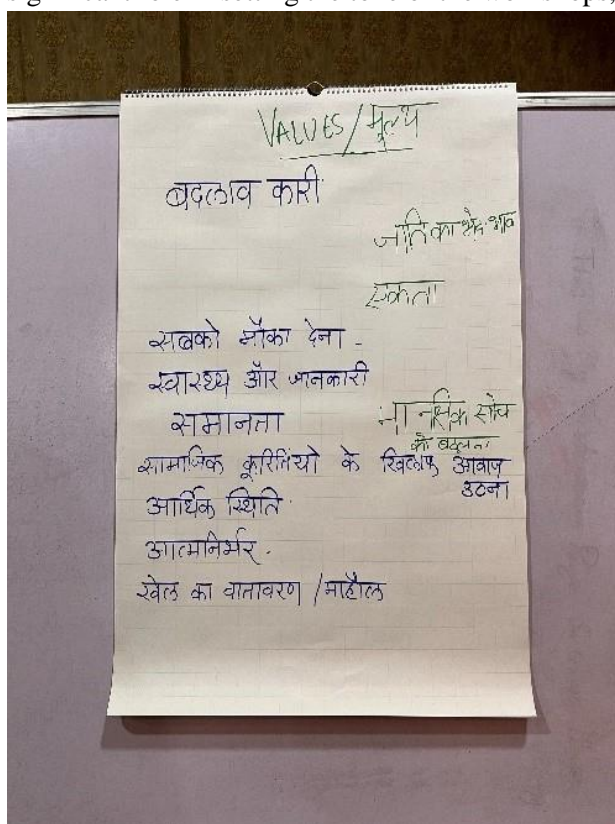 VALUES/मूल्य
बदलाव कारी
जाति का भेद भाव
एकता
सबको मौका देना -
स्वास्थ्य और जानकारी
समानता
मानसिक सोच
को बदलना
सामाजिक कूरितियो के खिलाफ आवाज
उठना
आर्थिक स्थिति
आत्मनिर्भर.
खेल का वातावरण /माहौल